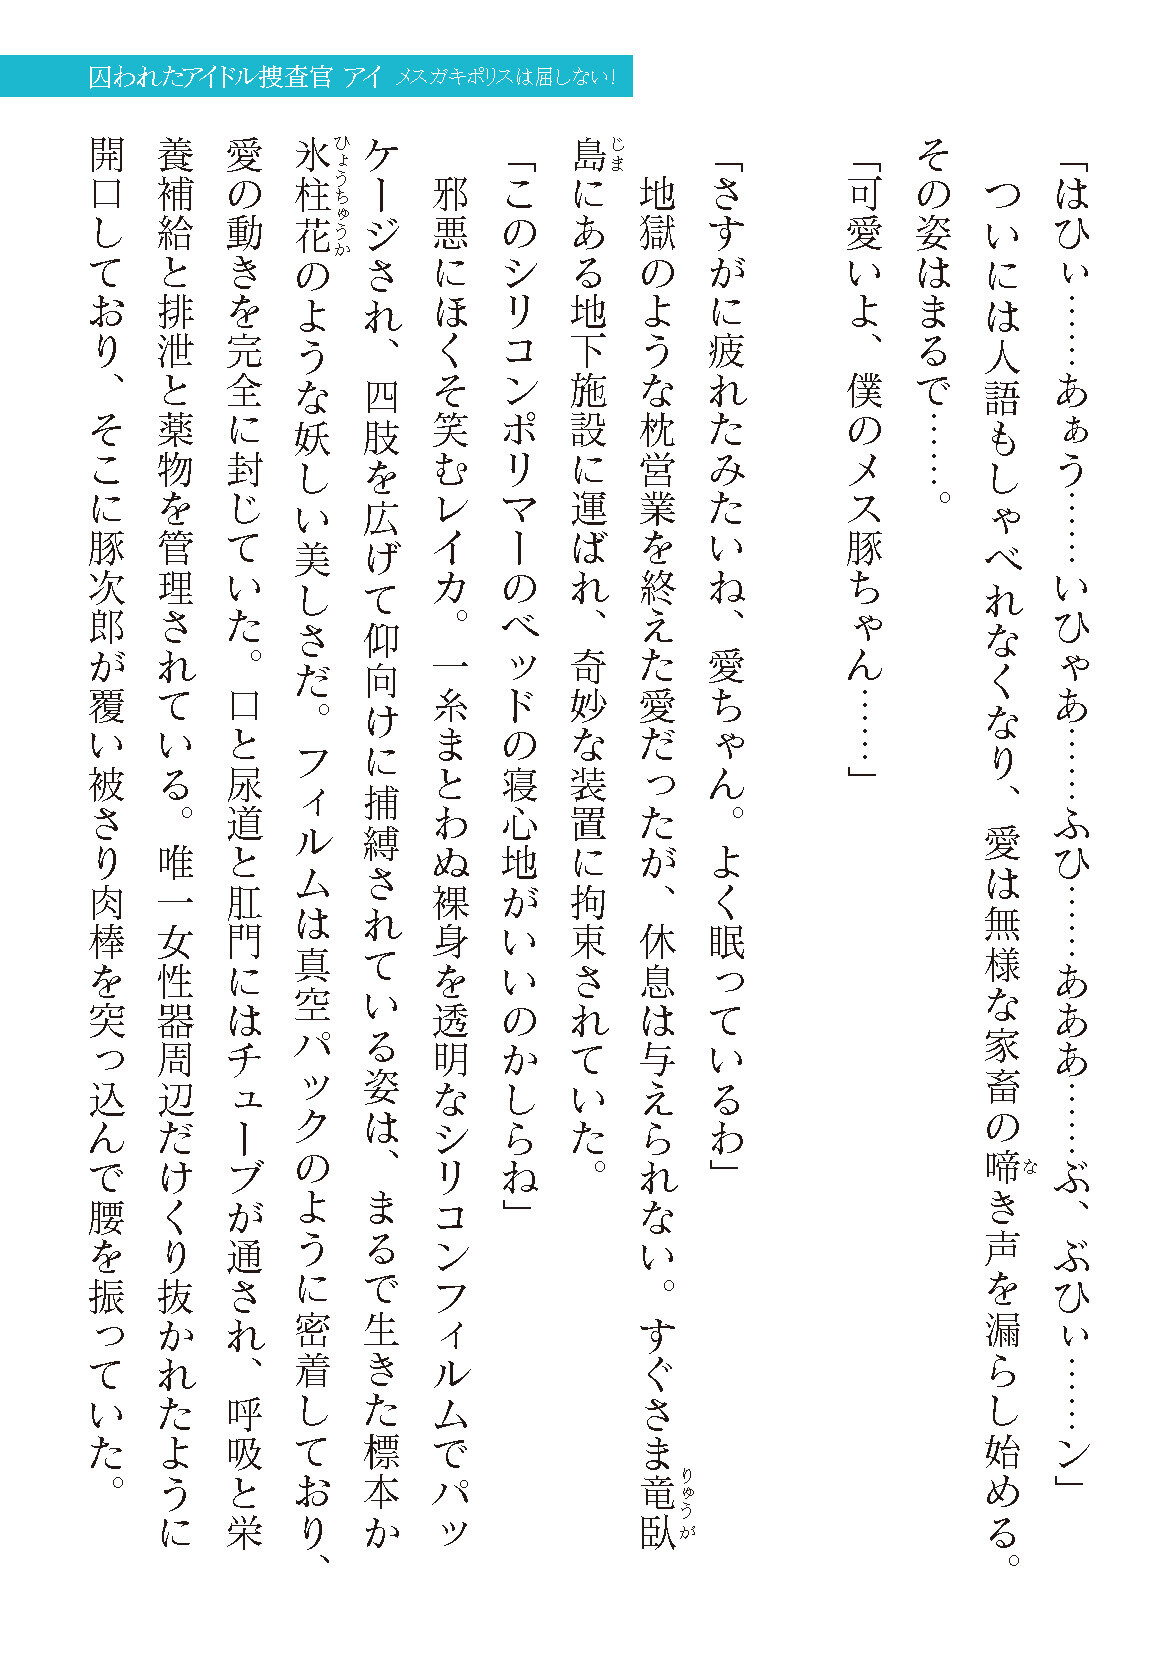 囚われたアイドル捜査官 アイ メスガキポリスは屈しない!
「はひぃ……あぁう……いひゃあ……ふひ……あああ……ぶ、ぶひぃ……ン」
ついには人語もしゃべれなくなり、愛は無様な家畜の啼き声を漏らし始める。
な
その姿はまるで……。
「可愛いよ、僕のメス豚ちゃん……」
「さすがに疲れたみたいね、愛ちゃん。よく眠っているわ」
地獄のような枕営業を終えた愛だったが、休息は与えられない。すぐさま竜臥
りゅうが
島にある地下施設に運ばれ、奇妙な装置に拘束されていた。
じま
「このシリコンポリマーのベッドの寝心地がいいのかしらね」
邪悪にほくそ笑むレイカ。一糸まとわぬ裸身を透明なシリコンフィルムでパッ
ケージされ、四肢を広げて仰向けに捕縛されている姿は、まるで生きた標本か
氷柱花のような妖しい美しさだ。フィルムは真空パックのように密着しており、
ひょうちゅうか
愛の動きを完全に封じていた。口と尿道と肛門にはチューブが通され、呼吸と栄
養補給と排泄と薬物を管理されている。唯一女性器周辺だけくり抜かれたように
開口しており、そこに豚次郎が覆い被さり肉棒を突っ込んで腰を振っていた。